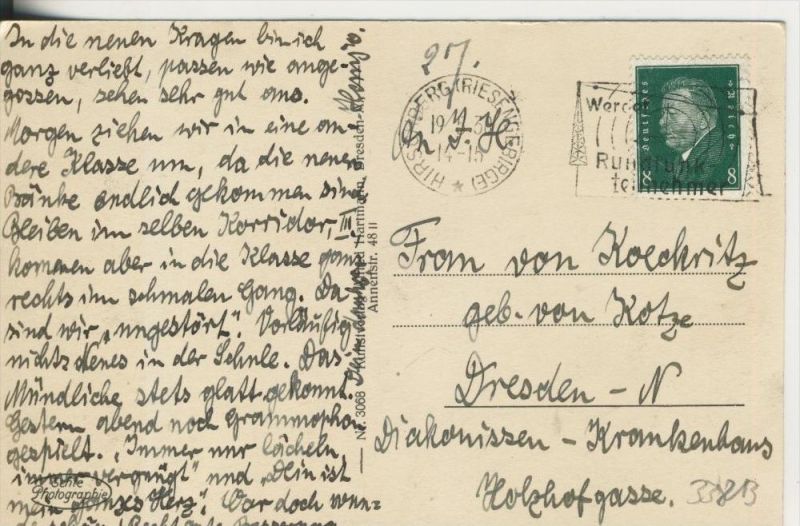 In die neuen Kragen bin ich
ganz verliebt, passen wie ange-
gossen, sehen sehr gut aus.
Morgen ziehen wir in eine an-
dere Klasse um, da die neuen
Bänke endlich gekommen sind
Bleiben im selben Korridor, III.
kommen aber in die Klasse ganz
rechts im schmalen Gang. Da
sind wir „ungestört“. Vorläufig
nichts Neues in der Schule. Das
Mündliche stets glatt gekonnt.
Gestern abend noch Grammophon
gespielt. „Immer nur lächeln,
immer vergnügt“ und „Dein ist
mein ganzes Herz“. War doch wun-
Echte
Photographie
Nr. 3068 Hartmann, Dresden-A.
Annenstr. 48 II
HIRSCHBERG (RIESENGEBIRGE)
14-15
Werdet
Rundfunk
teilnehmer
Deutsches Reich
8 8
Frau von Koeckritz
geb. von Kotze
Dresden – N
Diakonissen – Krankenhaus
Holzhofgasse.